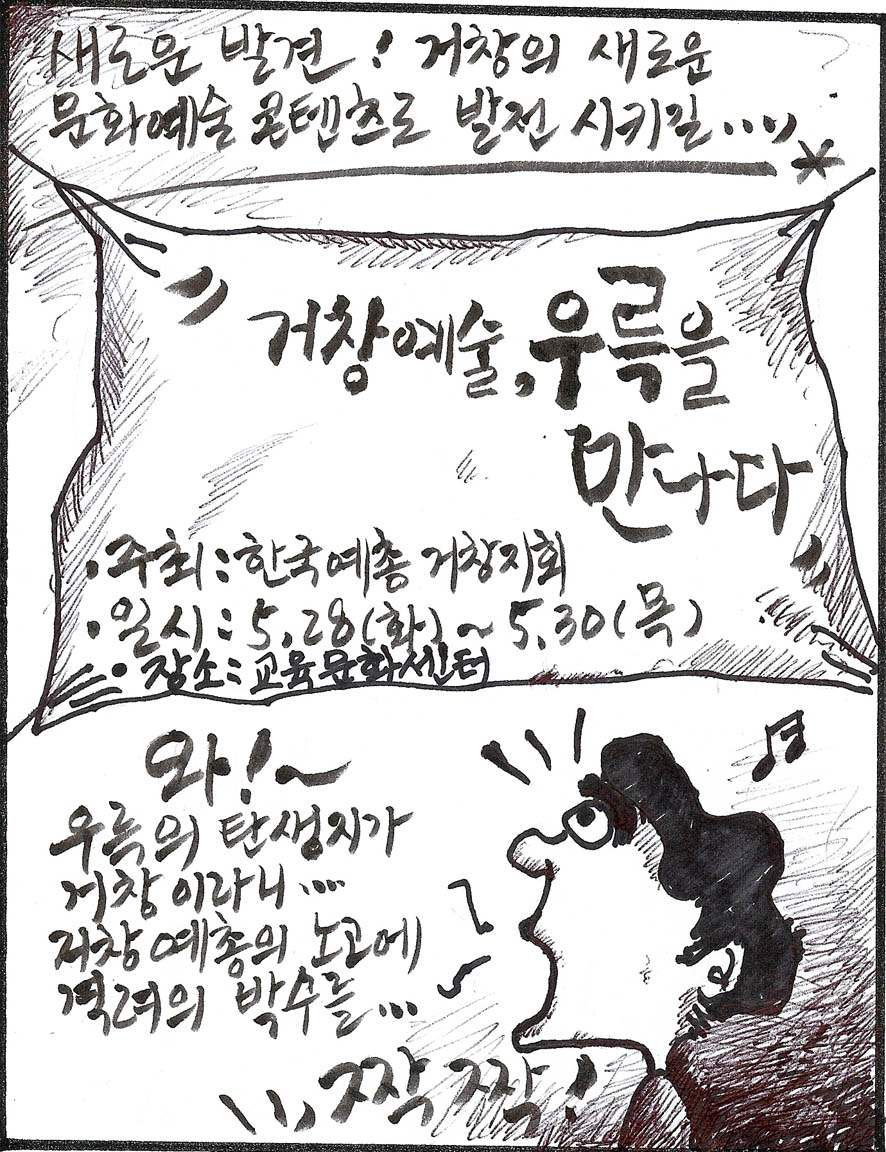 새로운 발견! 거창의 새로운
문화예술 콘텐츠로 발전 시키길....
"거창예술, 우륵을
만나다"
• 주최: 한국예총 거창지회
• 일시: 5.28(화)~5.30(목)
• 장소: 교육문화센터
와!~
우륵의 탄생지가
거창이라니....
거창예총의 노고에
격려의 박수를...
짝짝!